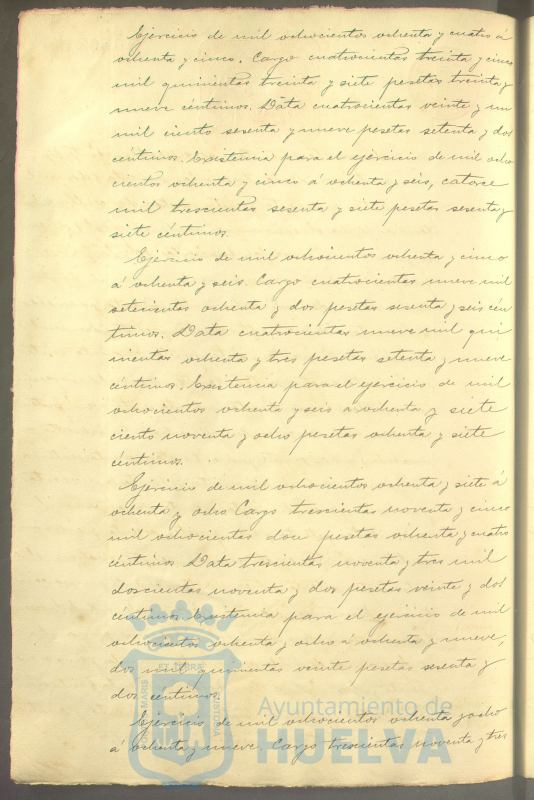 Ejercicio de mil ochocientos ochenta y cuatro á
ochenta y cinco. Cargo cuatrocientas treinta y cinco
mil quinientas treinta y siete pesetas treinta y
nueve céntimos. Data cuatrocientas veinte y un
mil ciento sesenta y nueve pesetas setenta y dos
céntimos. Existencia para el ejercicio de mil ocho
cientos ochenta y cinco á ochenta y seis, catorce
mil trescientas sesenta y siete pesetas sesenta y
siete céntimos.
Ejercicio de mil ochocientos ochenta y cinco
á ochenta y seis. Cargo cuatrocientas nueve mil
setecientas ochenta y dos pesetas sesenta y seis cén
timos. Data cuatrocientas nueve mil qui
nientas ochenta y tres pesetas setenta y nueve
céntimos. Existencia para el ejercicio de mil
ochocientos ochenta y seis á ochenta y siete
ciento noventa y ocho pesetas ochenta y siete
céntimos.
Ejercicio de mil ochocientos ochenta y siete á
ochenta y ocho Cargo trescientas noventa y cinco
mil ochocientas doce pesetas ochenta y cuatro
céntimos. Data trescientas noventa y tres mil
doscientas noventa y dos pesetas veinte y dos
céntimos. Existencia para el ejercicio de mil
ochocientos ochenta y ocho á ochenta y nueve,
dos mil quinientas veinte pesetas sesenta y
dos céntimos.
Ejercicio de mil ochocientos ochenta y ocho
á ochenta y nueve. Cargo trescientas noventa y tres
Ayuntamiento de
HUELVA